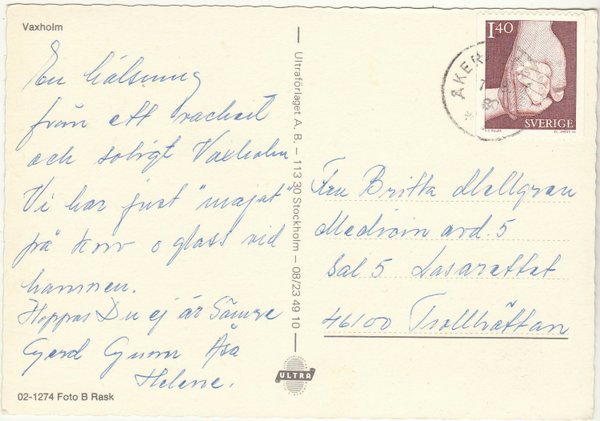 Vaxholm
En hälsning
från ett vackert
och soligt Vaxholm
Vi har just "majat"
på korv o glass vid
hamnen.
Hoppas Du ej är sämre
Gerd Gunn Åsa
Helene.
02-1274 Foto B Rask
Ultraförlaget A.B. – 113 30 Stockholm – 08/23 49 10
ULTRA
1.40
SVERIGE
ÅKERS
Fru Britta Mellgren
Medicin avd. 5
Sal 5 Lasarettet
46100 Trollhättan